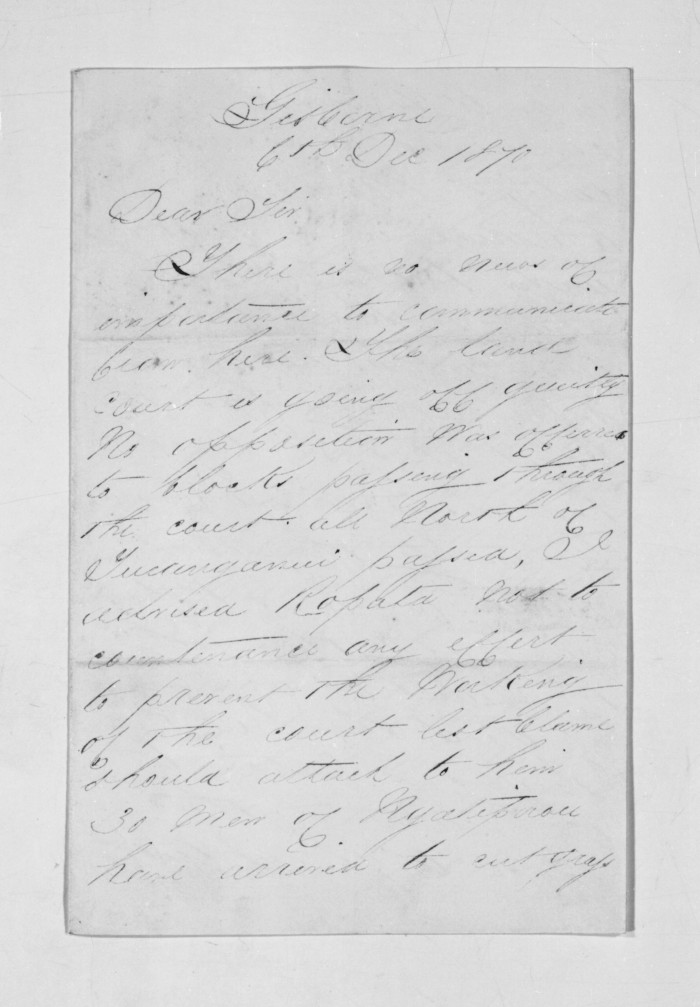 Gisborne
6th Dec 1870
Dear Sir
There is no news of
importance to communicate
from here. The land
court is going off quietly
No opposition was offered
to blocks passing through
the court. all North of
Turanganui passed, I
advised Ropata not to
countenance any effort
to prevent the Working
of the court lest blame
should attach to him
30 men of Ngatiporou
have arrived to cut grass